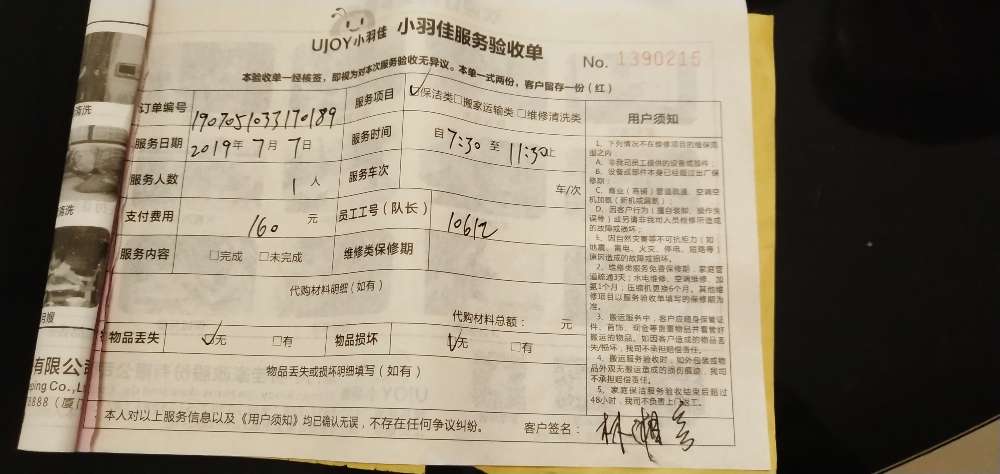 UJOY小羽佳 小羽佳服务验收单
No. 1390215
本验收单一经核签，即视为对本次服务验收无异议。本单一式两份，客户留存一份（红）
订单编号 190705103317018９ 服务项目 ☑保洁类□搬家运输类□维修清洗类 用户须知
服务日期 2019年7月7日 服务时间 自7:30至11:30止
服务人数 1人 服务车次 车/次
支付费用 160元 员工工号（队长） 10612
服务内容 □完成 □未完成 维修类保修期
代购材料明细（如有）
代购材料总额： 元
物品丢失 ☑无 □有 物品损坏 ☑无 □有
物品丢失或损坏明细填写（如有）
本人对以上服务信息以及《用户须知》均已确认无误，不存在任何争议纠纷。 客户签名：
1、下列情况不在维修项目的维保范
围之内：
A、非我司员工提供的设备或部件；
B、设备或部件本身已经超过出厂保
修期；
C、商业（商铺）管道疏通、空调空
机加氨（新机或漏氨）；
D、因客户行为（擅自装卸、操作失
误等）或另请非我司人员检修所造成
的故障或损坏；
E、因自然灾害等不可抗拒力（如
地震、雷电、火灾、停电、短路等）
原因造成的故障或损坏。
2、维修类服务免费保修期：家庭管
道疏通3天；水电维修、空调维修、加
氨1个月；压缩机更换6个月。其他维
修项目以服务验收单填写的保修期为
准。
3、搬运服务中，客户应随身保管证
件、首饰、现金等贵重物品并看管好
搬运的物品。如因客户造成的物品丢
失/损坏，我司不承担赔偿责任。
4、搬运服务验收时，如外包装或物
品外观无搬运造成的损伤痕迹，我司
不承担赔偿责任。
5、家庭保洁服务验收结束后超过
48小时，我司不负责上门返工。
清洗
清洗
有限公司
ping Co.,Ltd
8888（厦门